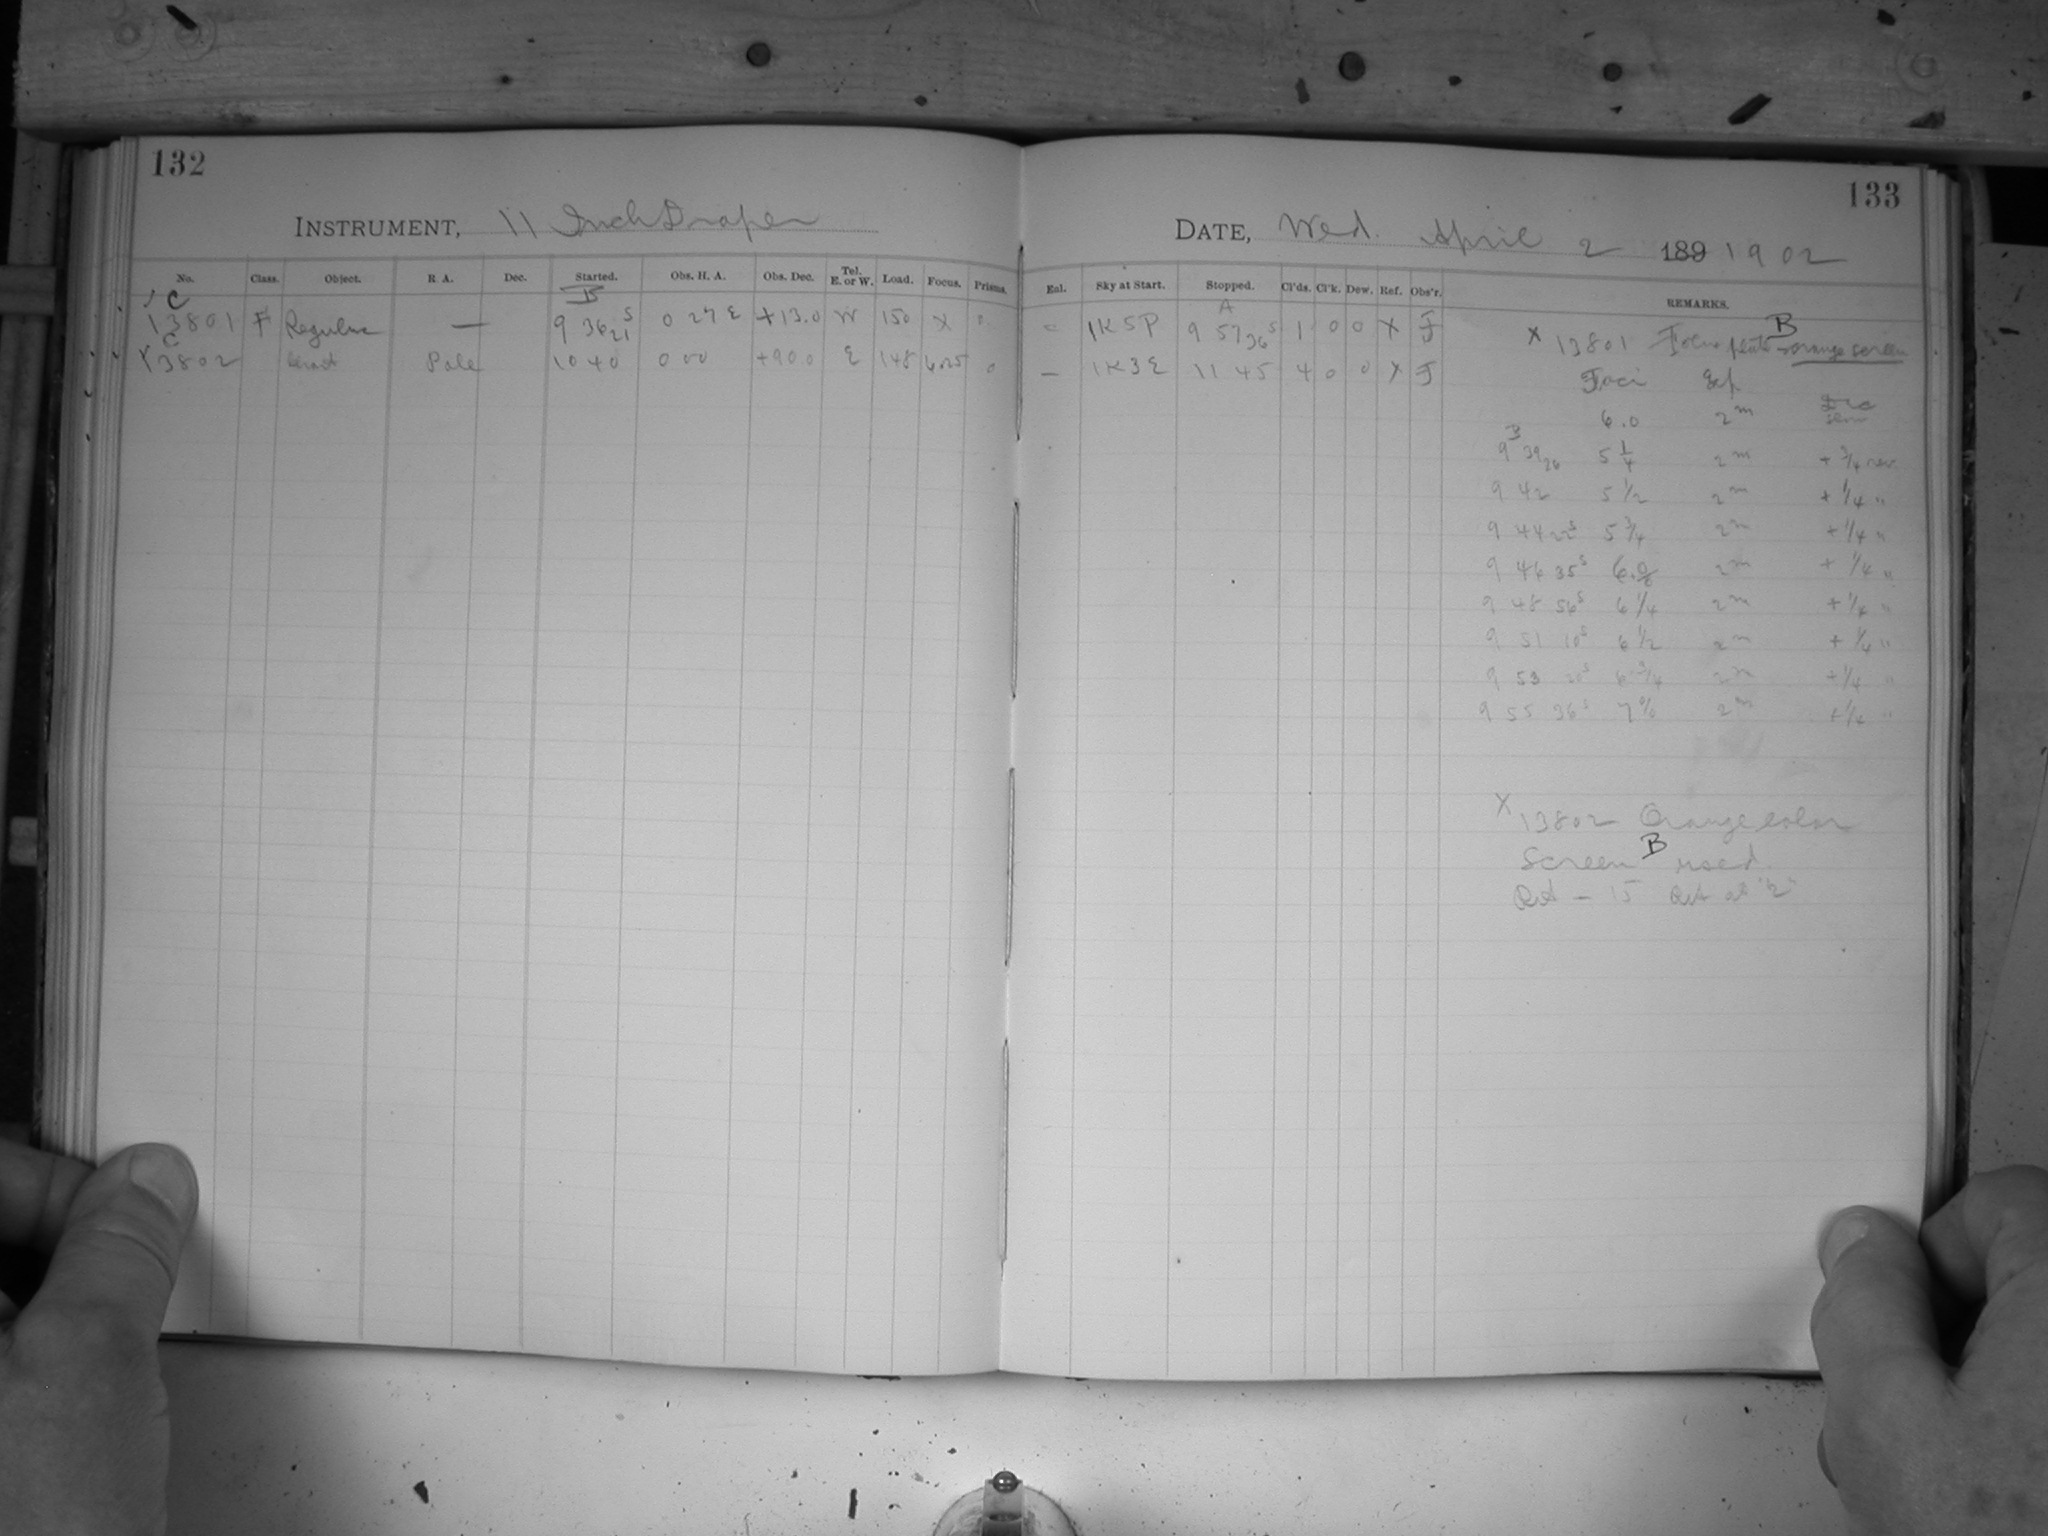 132
133
INSTRUMENT, 11 Inch Draper
DATE, Wed. April 2 189 1902
No. Class. Object. R. A. Dec. Started. Obs. H. A. Obs. Dec. Tel. E. or W. Load. Focus. Prisms.
Enl. Sky at Start. Stopped. Cl'ds. Cl'k. Dew. Ref. Obs'r. REMARKS.
C B
13801 F Regulus — 9 36 21 S 0 27 E +13.0 W 150 X 0
A
1K5P 9 57 36 S 1 0 0 X J
C
13802 Pole 10 40 0 00 +90.0 E 148 6.25 0
— 1K3E 11 45 4 0 0 X J
X 13801 Focus plate B orange screen
Foci Exp
6.0 2m
B
9 39 26 5 1/4 2m + 3/4 rev.
9 42 5 1/2 2m + 1/4 "
9 44 22s 5 3/4 2m + 1/4 "
9 46 35s 6.0 2m + 1/4 "
9 48 56s 6 1/4 2m + 1/4 "
9 51 10s 6 1/2 2m + 1/4 "
9 53 20s 6 3/4 2m + 1/4 "
9 55 36s 7 2m + 1/4 "
X 13802 Orange color
Screen B used.